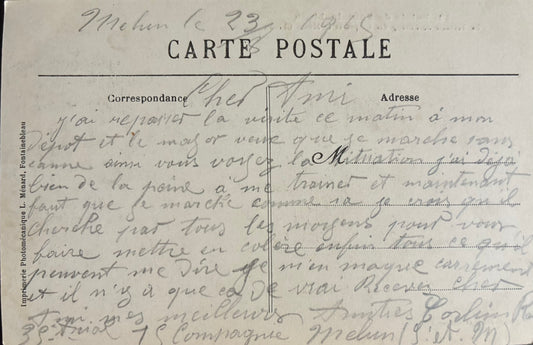 Melun le 23 1915
CARTE POSTALE
Correspondance
Adresse
Cher Ami
j'ai repasser la visite ce matin à mon
dépot et le major veux que je marche sans
canne ainsi vous voyez la Mituation j'ai deja
bien de la peine à me trainer et maintenant
faut que je marche comme sa je crois qu'il
cherche par tous les moyens pour vous
faire mettre en colère enfin tous ce qu'il
peuvent me dire je m'en moque carrement
et il n'y à que ca de vrai Recever cher
Ami mes meilleurs Amitiés
35e 15 Compagnie Melun (S. et M)
Imprimerie Photomécanique L. Ménard, Fontainebleau